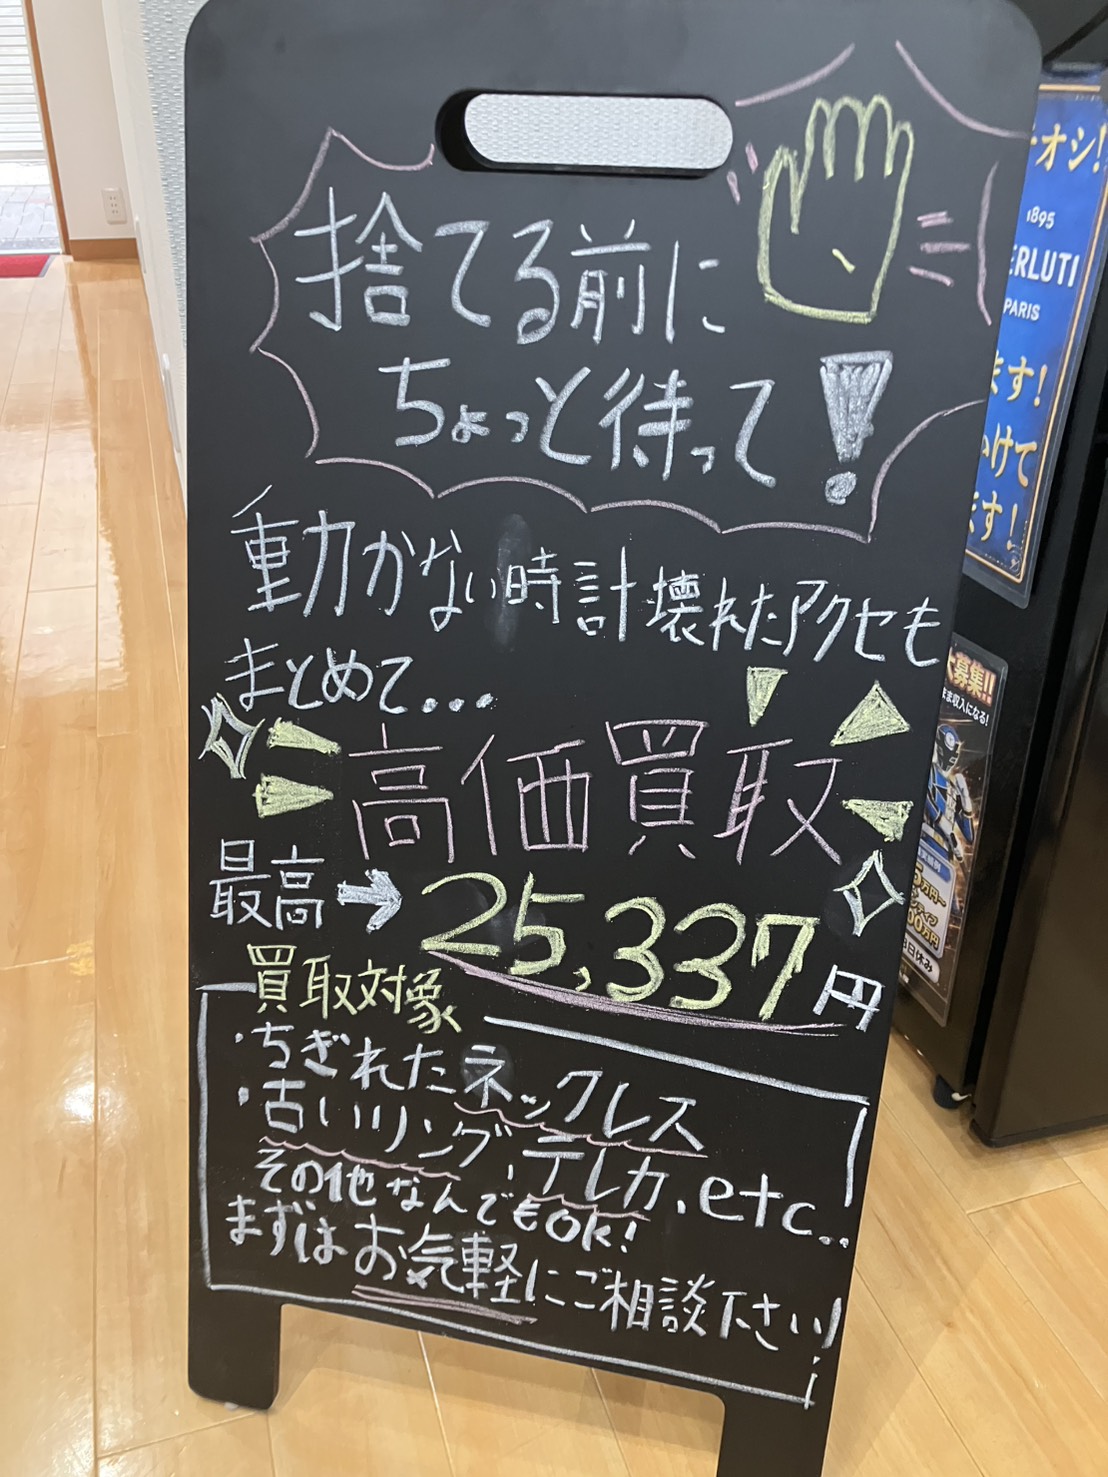 捨てる前に
ちょっと待って!
動かない時計壊れたアクセも
まとめて...
高価買取
最高→25,337円
買取対象
・ちぎれたネックレス
・古いリング、テレカ、etc...
その他なんでもOK!
まずはお気軽にご相談下さい!
オシ!
1895
ERLUTI
PARIS
ます!
かけて
ます!
大募集!!
まま収入になる!
万円〜
00万円
日休み